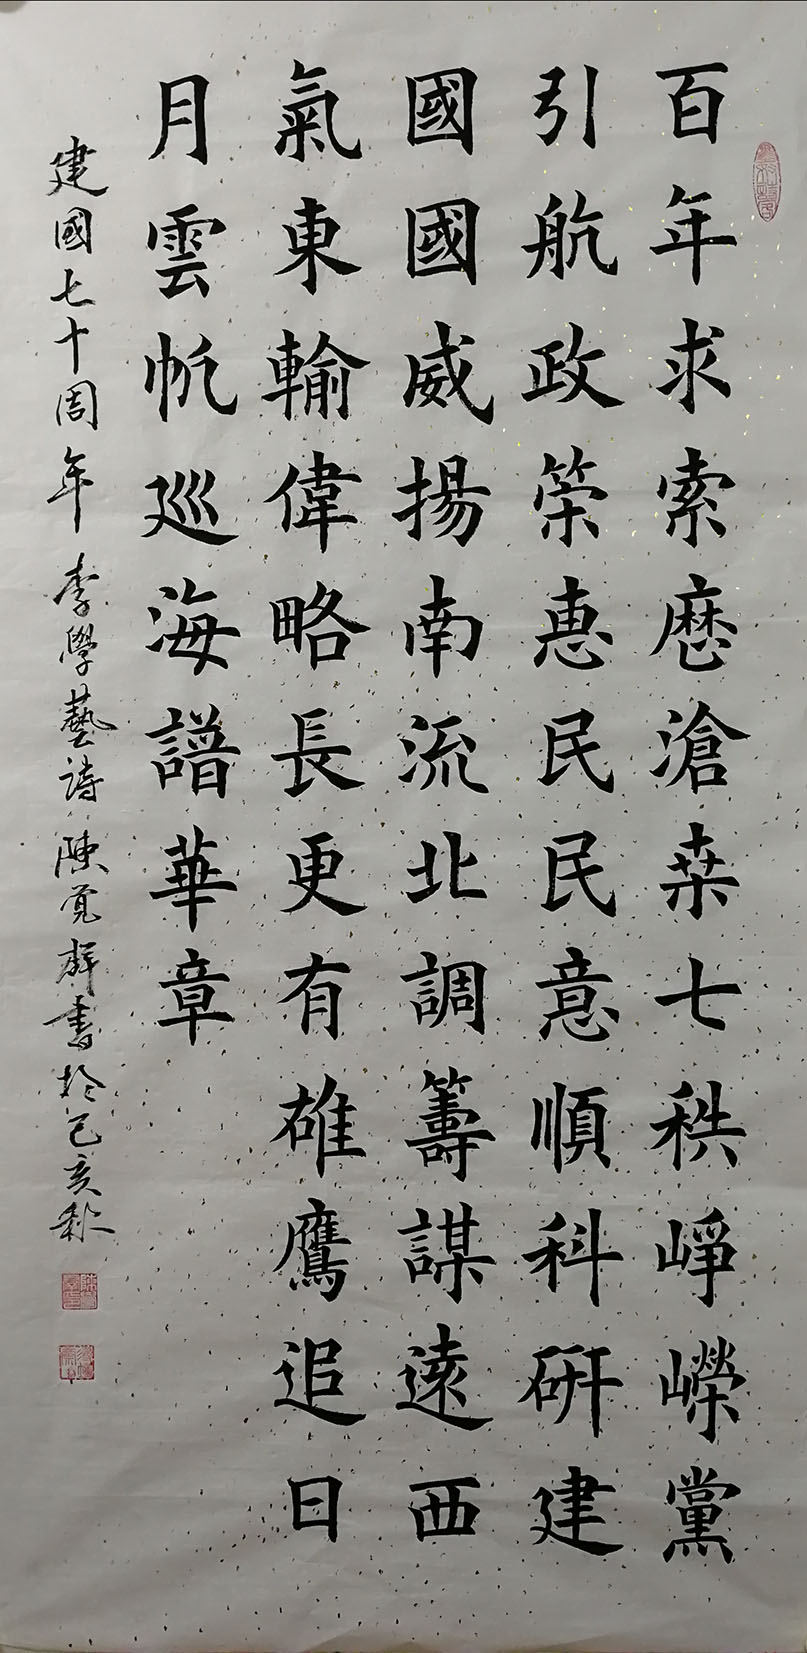 百年求索歷滄桒七秩崢嶸黨
引航政策惠民民意順科研建
國國威揚南流北調籌謀遠西
氣東輸偉略長更有雄鷹追日
月雲帆巡海譜華章
建國七十周年李學藝詩陳覓群書於己亥秋